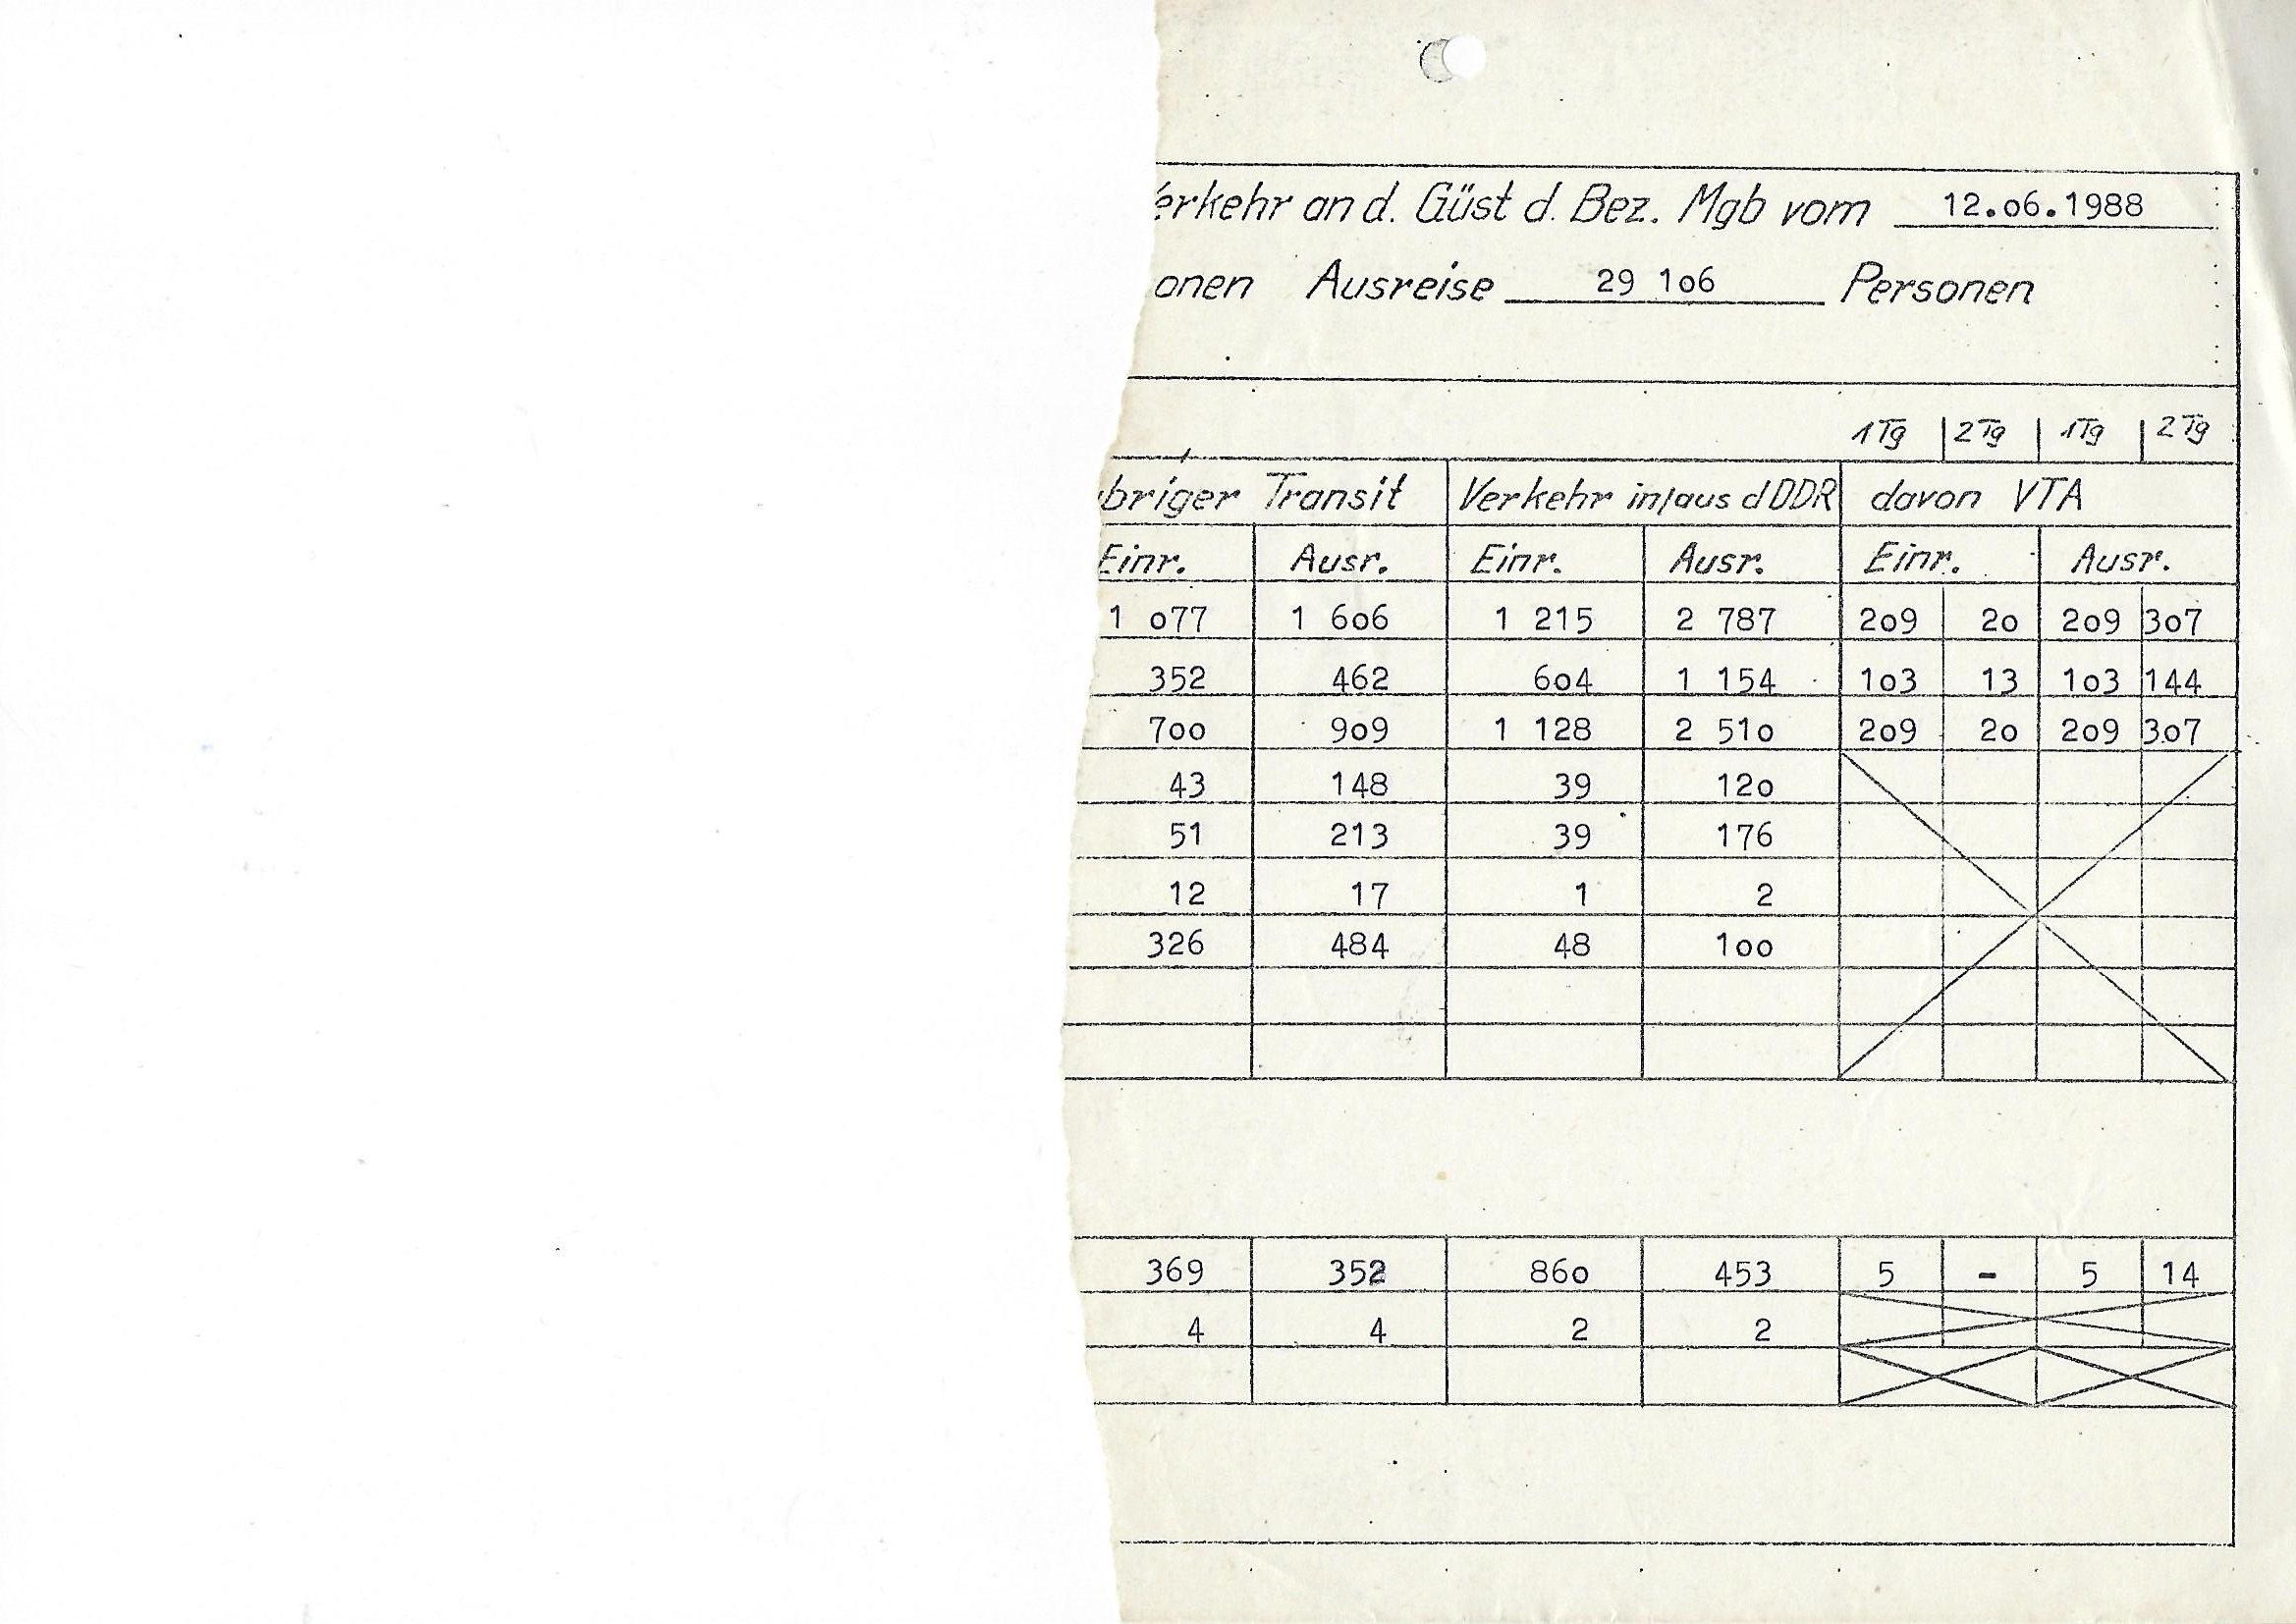 erkehr an d. Güst d. Bez. Mgb vom 12.o6.1988
onen Ausreise 29 1o6 Personen
1Tg 2Tg 1Tg 2Tg
briger Transit Verkehr in/aus d DDR davon VTA
Einr. Ausr. Einr. Ausr. Einr. Ausr.
1 o77 1 6o6 1 215 2 787 2o9 2o 2o9 3o7
352 462 6o4 1 154 1o3 13 1o3 144
7oo 9o9 1 128 2 51o 2o9 2o 2o9 3o7
43 148 39 12o
51 213 39 176
12 17 1 2
326 484 48 1oo
369 352 86o 453 5 - 5 14
4 4 2 2